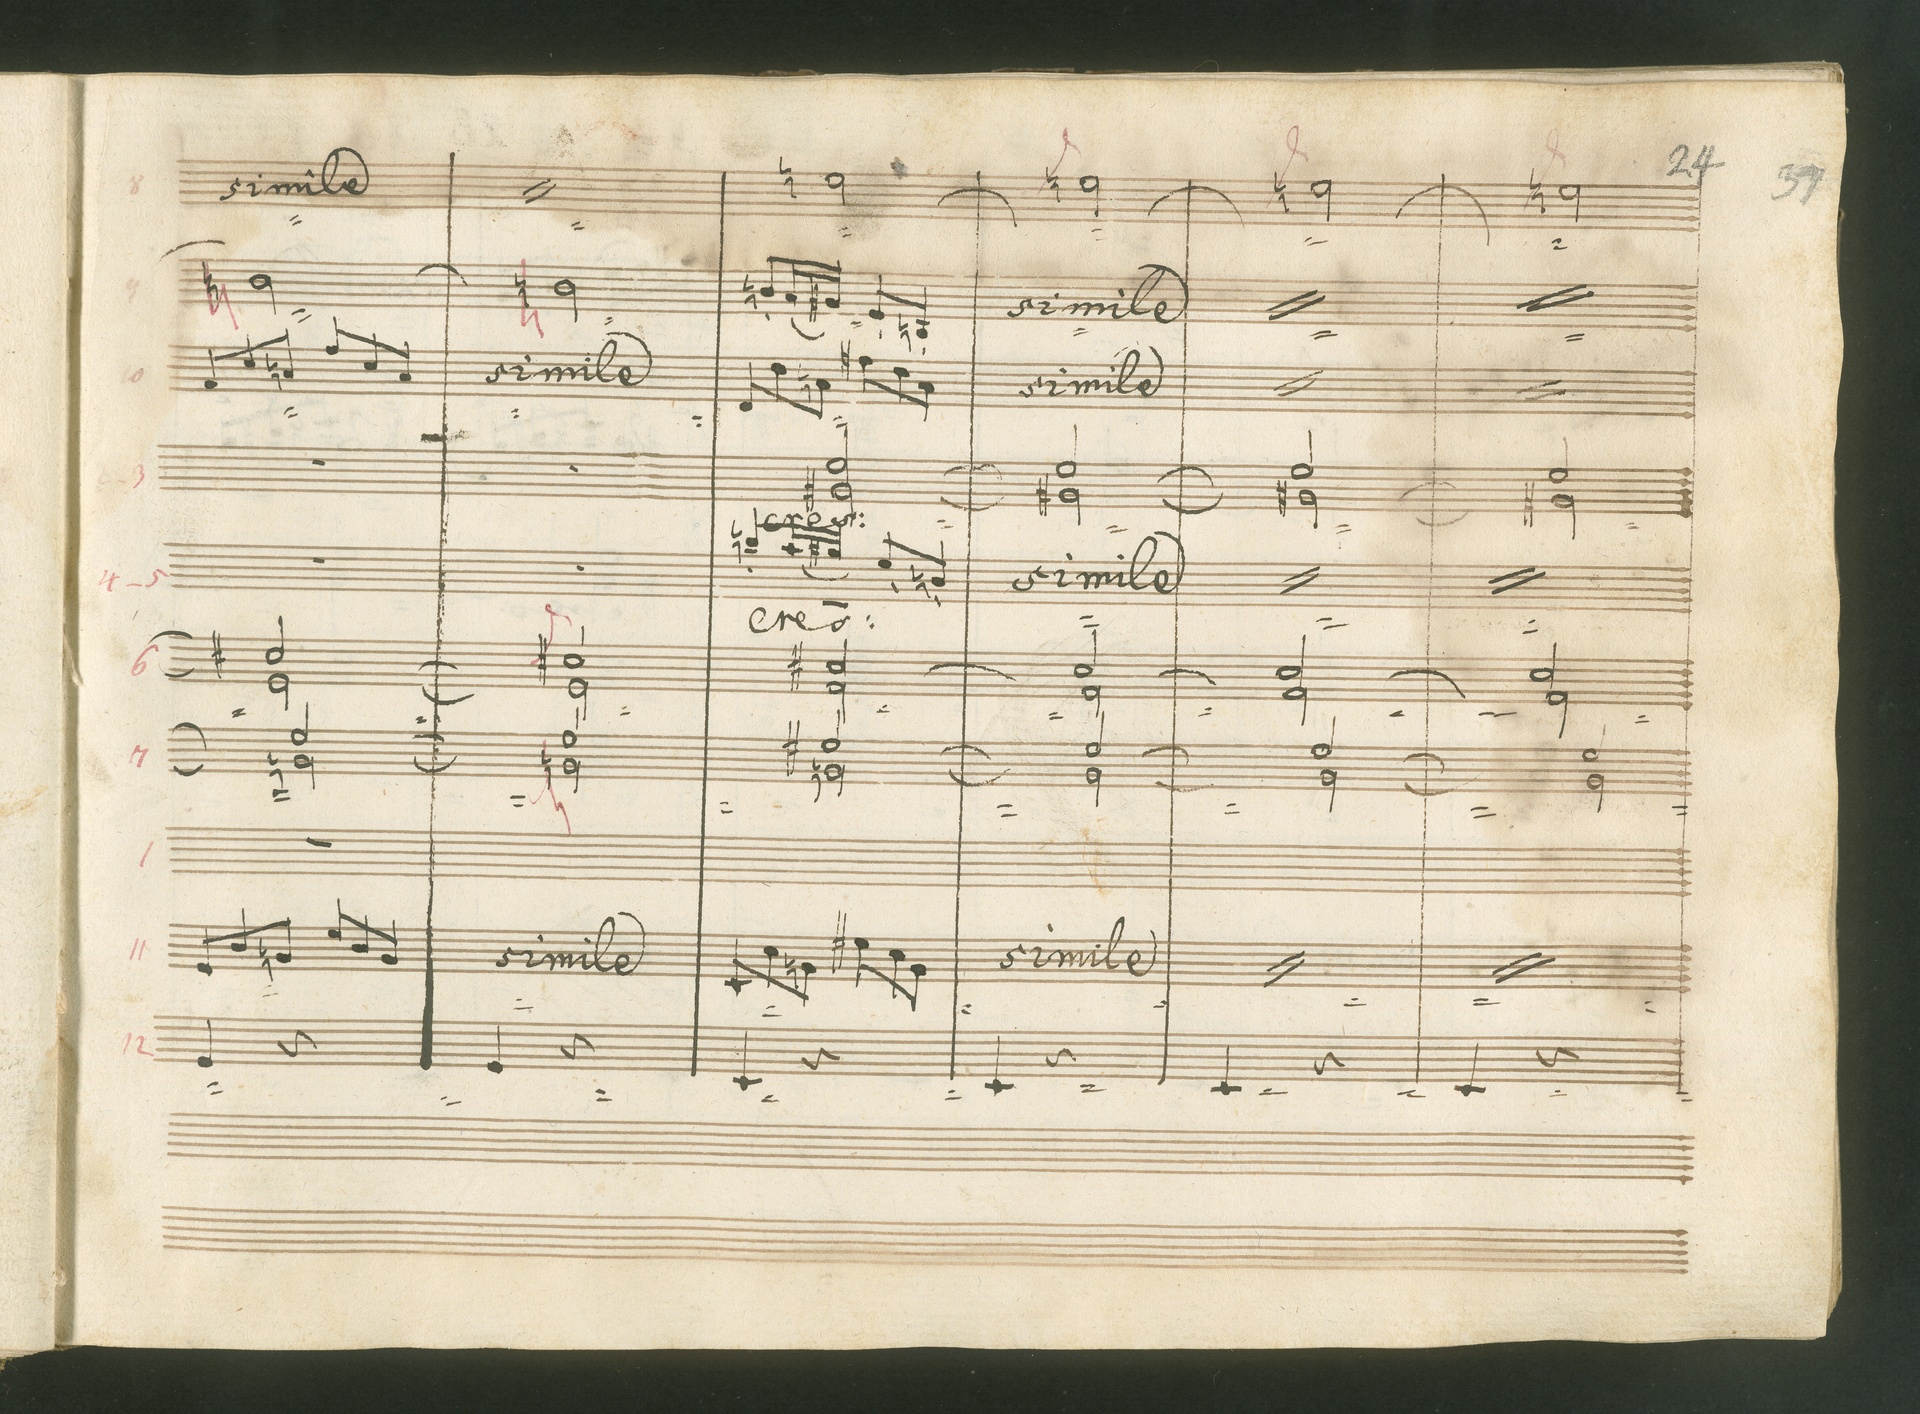 24 37
8 simile
9 simile
10 simile simile
3
cres:
4-5 simile
cres:
6
7
1
11 simile simile
12